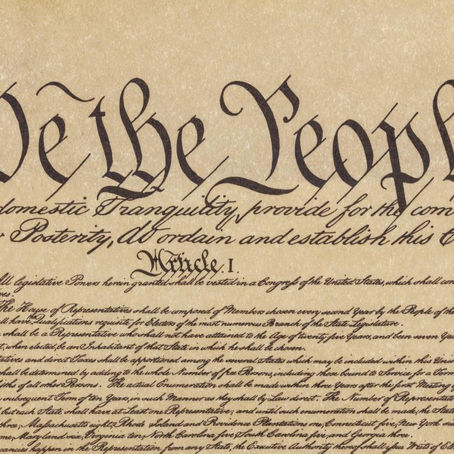 We the People
domestic Tranquility, provide for the com
Posterity, do ordain and establish this C
Article. I.
All legislative Powers herein granted shall be vested in a Congress of the United States, which shall con
ives.
The House of Representatives shall be composed of Members chosen every second Year by the People of the
all have Qualifications requisite for Electors of the most numerous Branch of the State Legislature.
shall be a Representative who shall not have attained to the Age of twenty five Years, and been seven Year
t, when elected, be an Inhabitant of that State in which he shall be chosen.
entatives and direct Taxes shall be apportioned among the several States which may be included within this Union
shall be determined by adding to the whole Number of free Persons, including those bound to Service for a Term
ths of all other Persons. The actual Enumeration shall be made within three Years after the first Meeting of
subsequent Term of ten Years, in such Manner as they shall by Law direct. The Number of Representati
but each State shall have at Least one Representative; and until such enumeration shall be made, the State
hree, Massachusetts eight, Rhode Island and Providence Plantations one, Connecticut five, New York six
one, Maryland six, Virginia ten, North Carolina five, South Carolina five, and Georgia three.
cancies happen in the Representation from any State, the Executive Authority thereof shall